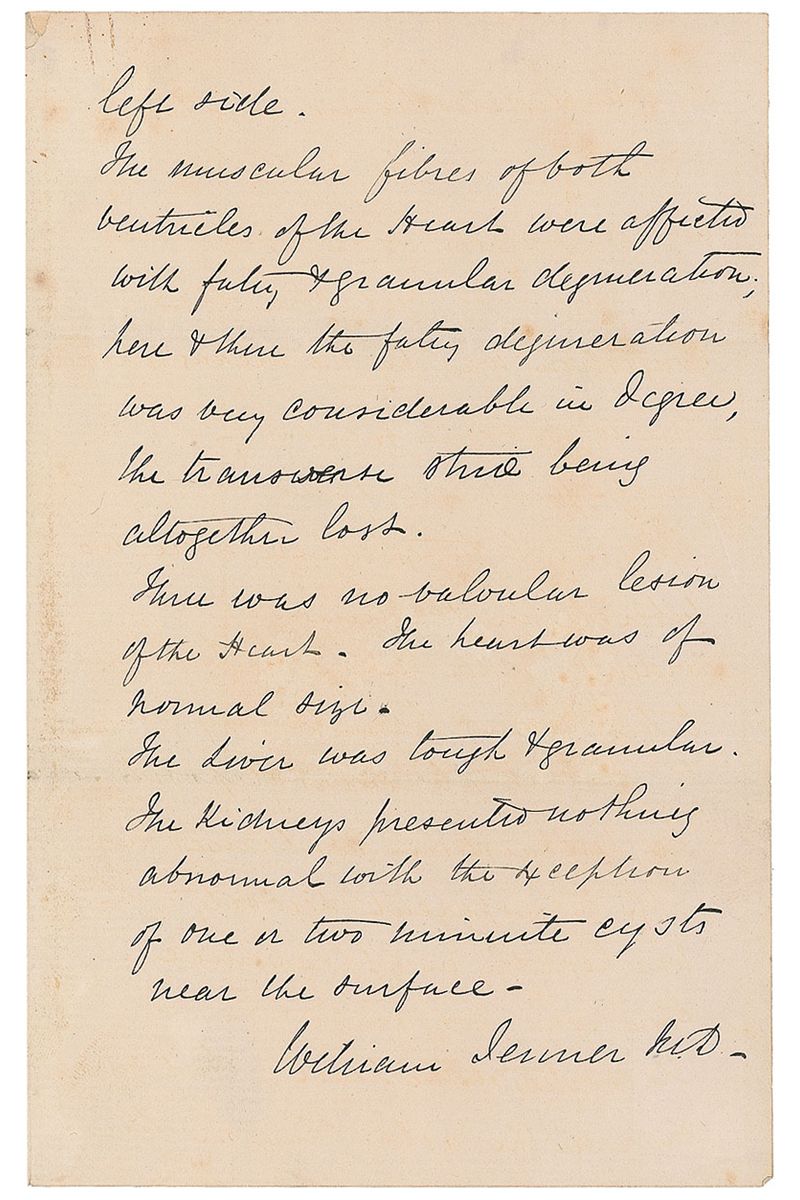 left side.
The muscular fibres of both
ventricles of the Heart were affected
with fatty & granular degeneration;
here & there the fatty degeneration
was very considerable in degree,
the transverse striæ being
altogether lost.
There was no valvular lesion
of the Heart. The heart was of
normal size.
The Liver was tough & granular.
The Kidneys presented nothing
abnormal with the exception
of one or two minute cysts
near the surface -
William Jenner M.D. -